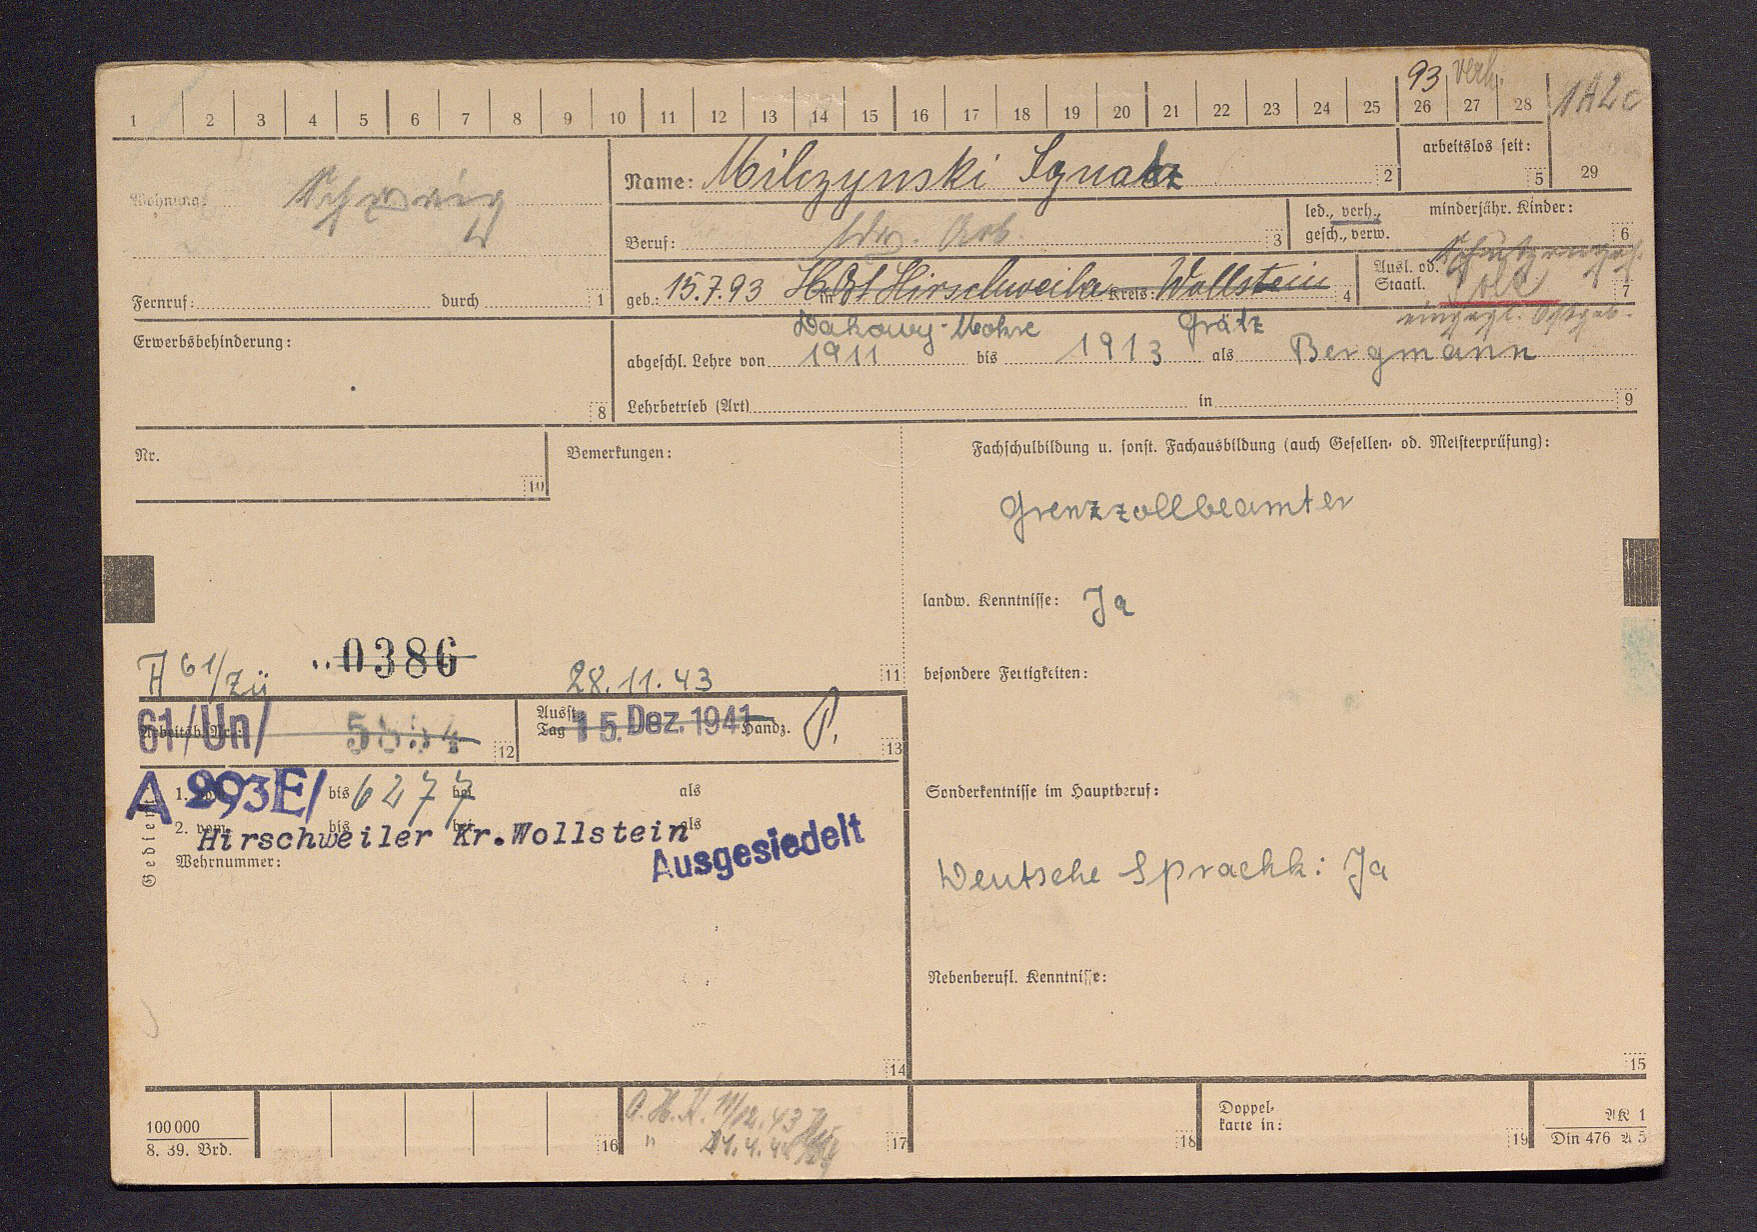 93 verh.
1 2 3 4 5 6 7 8 9 10 11 12 13 14 15 16 17 18 19 20 21 22 23 24 25 26 27 28 1A2c
29
Wohnung:
Name: Milczynski Ignatz 2
arbeitslos seit: 5
Beruf: ldw. Arb. 3
led., verh., gesch., verw.
minderjähr. Kinder: 6
Fernruf: durch 1
geb.: 15.7.93 in Hirschweiler Kreis: Wollstein 4
Ausl. od. Staatl. Pole 7
eingegl. Ostgeb.
Dakowy-Mokre Grätz
Erwerbsbehinderung: 8
abgeschl. Lehre von 1911 bis 1913 als Bergmann
Lehrbetrieb (Art) in 9
Nr. 10
Bemerkungen:
Fachschulbildung u. sonst. Fachausbildung (auch Gesellen- od. Meisterprüfung):
Grenzzollbeamter
landw. Kenntnisse: Ja
A 61/Zü 0386 28.11.43 11
besondere Fertigkeiten:
61/Un/ 5854 12
Arbeitsb. Nr.:
Ausst. Tag 15. Dez. 1941 Handz. 13
Gedient
A 293E/ 6277
1. vom bis bei als
2. vom bis bei als
Hirschweiler Kr.Wollstein
Ausgesiedelt
Wehrnummer:
14
Sonderkentnisse im Hauptberuf:
Deutsche Sprachk: Ja
Nebenberufl. Kenntnisse:
15
100 000
8. 39. Brd.
16
O.K.K. 11/12.43
" 24.4.44
17
18
Doppelkarte in: 19
AK 1
Din 476 A 5